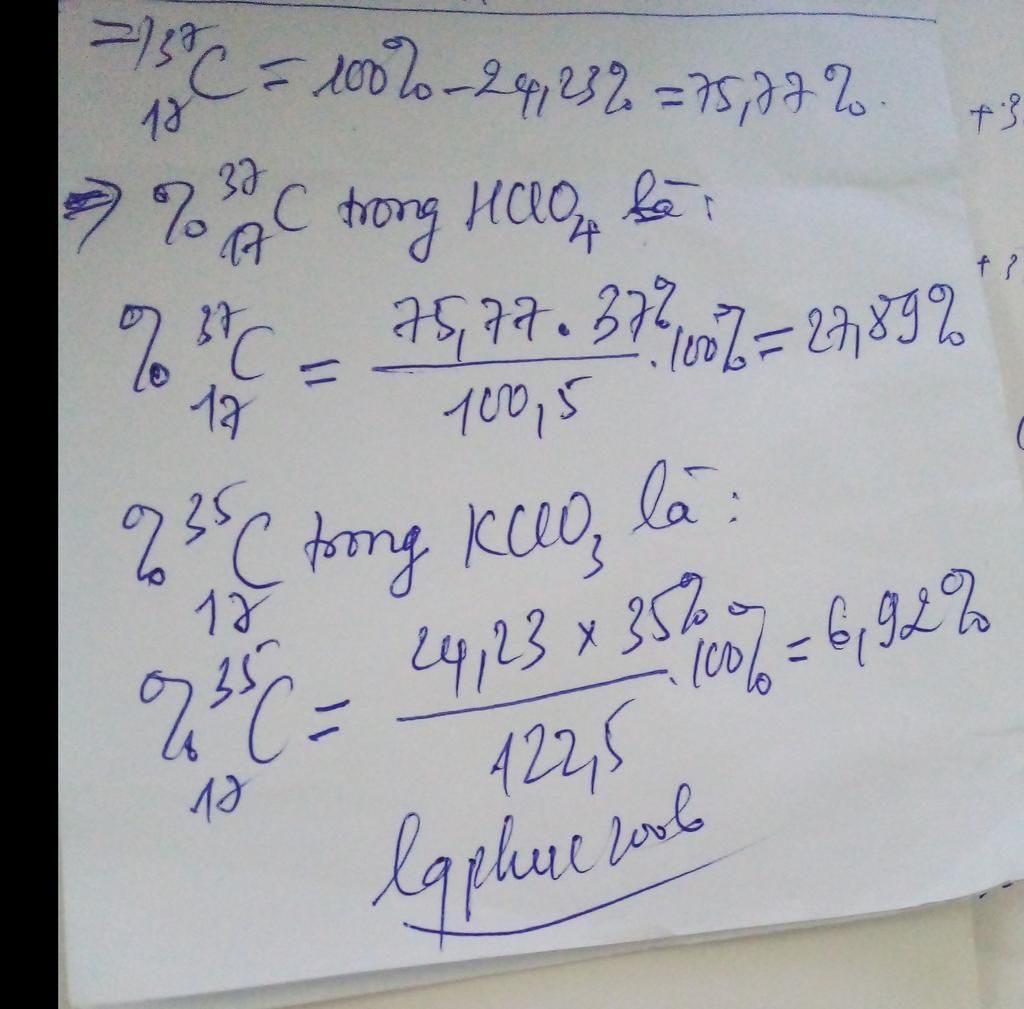 => ³⁷₁₇C = 100% - 24,23% = 75,77%.
=> % ³⁷₁₇C trong HClO₄ là:
% ³⁷₁₇C = (75,77 . 37%)/(100,5) . 100% = 27,89%
% ³⁵₁₇C trong KClO₃ là:
% ³⁵₁₇C = (24,23 x 35%)/(122,5) . 100% = 6,92%
lqphuc2006
+3